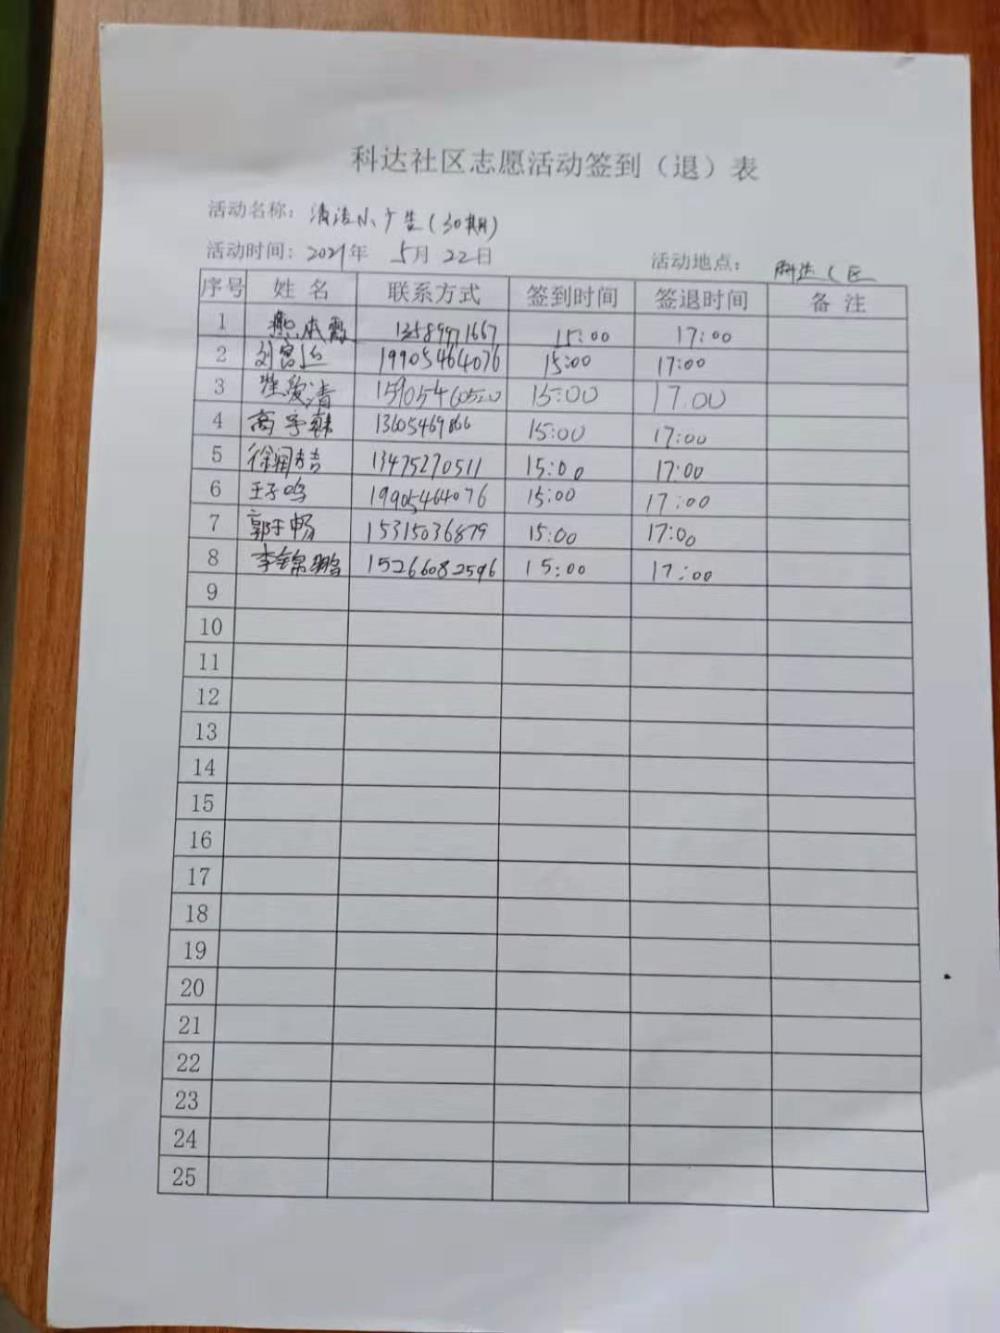 科达社区志愿活动签到（退）表
活动名称：清洁小广告(30期)
活动时间：2021年 5月 22日 活动地点：科达C区
序号 姓名 联系方式 签到时间 签退时间 备注
1 13589971667 15:00 17:00
2 19905464076 15:00 17:00
3 15:00 17.00
4 高子韩 13605469866 15:00 17:00
5 徐润吉 13475270511 15:00 17:00
6 王子鸣 19905464076 15:00 17:00
7 郭于畅 15315036879 15:00 17:00
8 李锦鹏 15266082596 15:00 17:00
9
10
11
12
13
14
15
16
17
18
19
20
21
22
23
24
25